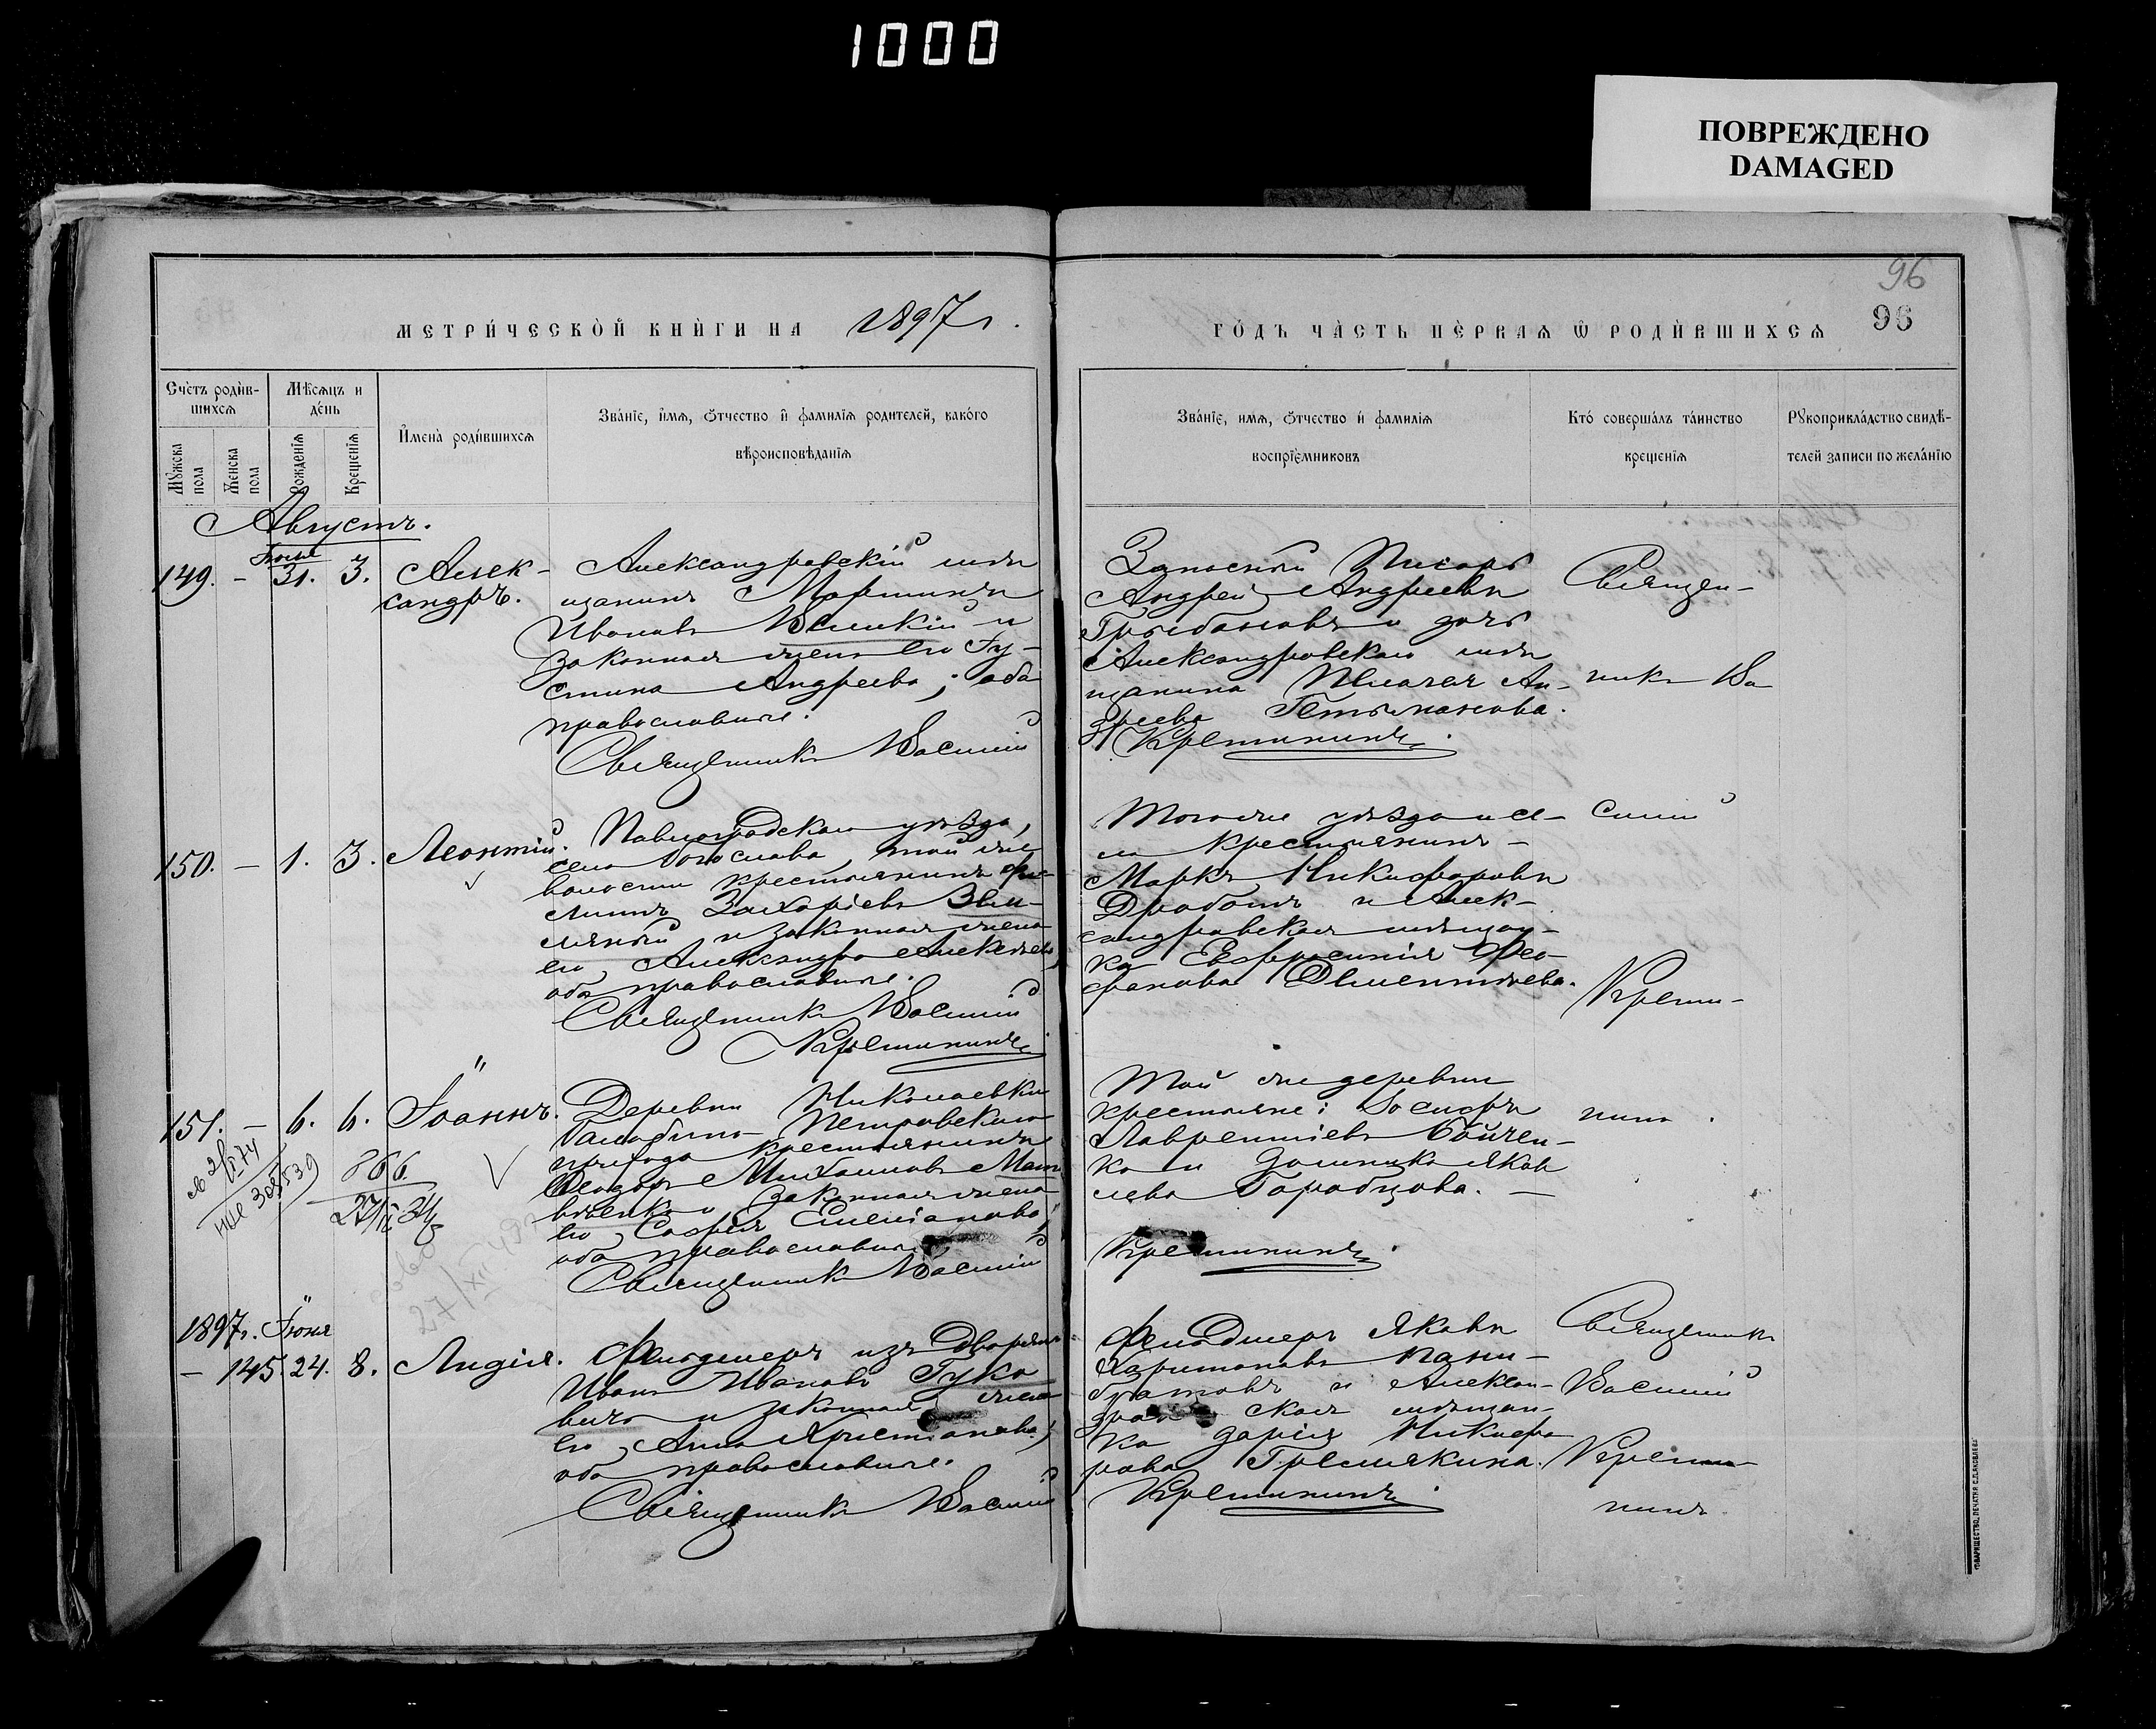 1000
ПОВРЕЖДЕНО
DAMAGED
96
96
МЕТРИ́ЧЕСКОЙ КНИ́ГИ НА 1897 г.
ГО́ДЪ ЧА́СТЬ ПЕ́РВАѦ Ѡ РОДИ́ВШИХСѦ
Сче́тъ роди́в-
шихсѧ
Мѣ́сѧцъ и
де́нь
Мꙋ́жска
пола
Же́нска
пола
Рожденїѧ
Крещенїѧ
И҆мена̀ роди́вшихсѧ
Зва́нїе, и҆́мѧ, ѻ҆́тчество и҆ фамилїѧ родителей, како́го
вѣроисповѣ́данїѧ
Зва́нїе, имѧ, ѻ҆́тчество и҆ фамилїѧ
воспрїе́мниковъ
Кто́ соверша́лъ та́инство
крещенїѧ
Рꙋкоприкла́дство свидѣ́-
телей записи по жела́нїю
Августъ.
149. – 31. 3. Алек-
сандръ.
Александровскій мѣ
щанинъ Мартинъ
Ивановъ и
законная жена его Гу-
стина Андреева; оба
православные.
Священникъ Василій
Запасный Писарь
Андрей Андреевъ
Грибановъ и дочь
Александровскаго мѣ
щанина Пелагея Ан-
дреева Гетьманова.
Крещининъ.
Священ-
никъ Ва
150. – 1. 3. Леонтій.
Павлоградскаго уѣзда,
села Богослава, той же
волости крестьянинъ Фи-
липпъ Захаріевъ Зем-
ляный и законная жена
его Александра Алексѣева
оба православные.
Священникъ Василій
Крещининъ
Того же уѣзда и се-
ла крестьянинъ –
Маркъ Никифоровъ
Дработъ и Алек-
сандровская мѣщан-
ка Евфросинія Фео-
фанова Дементьева.
силій
Крещи-
151. – 6. 6. Іоаннъ.
Деревни Николаевки
Петровскаго
прихода крестьянинъ
Ѳеодоръ Михаиловъ Мат
вѣенко и законная жена
его Софія Емеліанова,
оба православные.
Священникъ Василій
Той же деревни
крестьяне: Іосифъ
Лаврентіевъ Бойчен-
ко и Домника Яков
лева Горобцова. –
Крещининъ.
нинъ.
866
27/XII
1897 г. Іюня
– 145. 24. 8. Лидія.
Фельдшеръ изъ Дворянъ
Иванъ Ивановъ Гуко
вичъ и законная жена
его Анна Христіанова,
оба православные.
Священникъ Василій
Фельдшеръ Яковъ
Харитоновъ Пани-
братовъ и Алексан-
дров ская мѣщан-
ка Дарія Никифо
рова Гремякина.
Крещининъ.
Священникъ
Василій
Крещи-
нинъ.